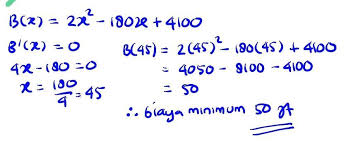 B(x) = 2x² - 180x + 4100
B'(x) = 0
4x - 180 = 0
x = 180/4 = 45
B(45) = 2(45)² - 180(45) + 4100
= 4050 - 8100 - 4100
= 50
∴ biaya minimum 50 jt